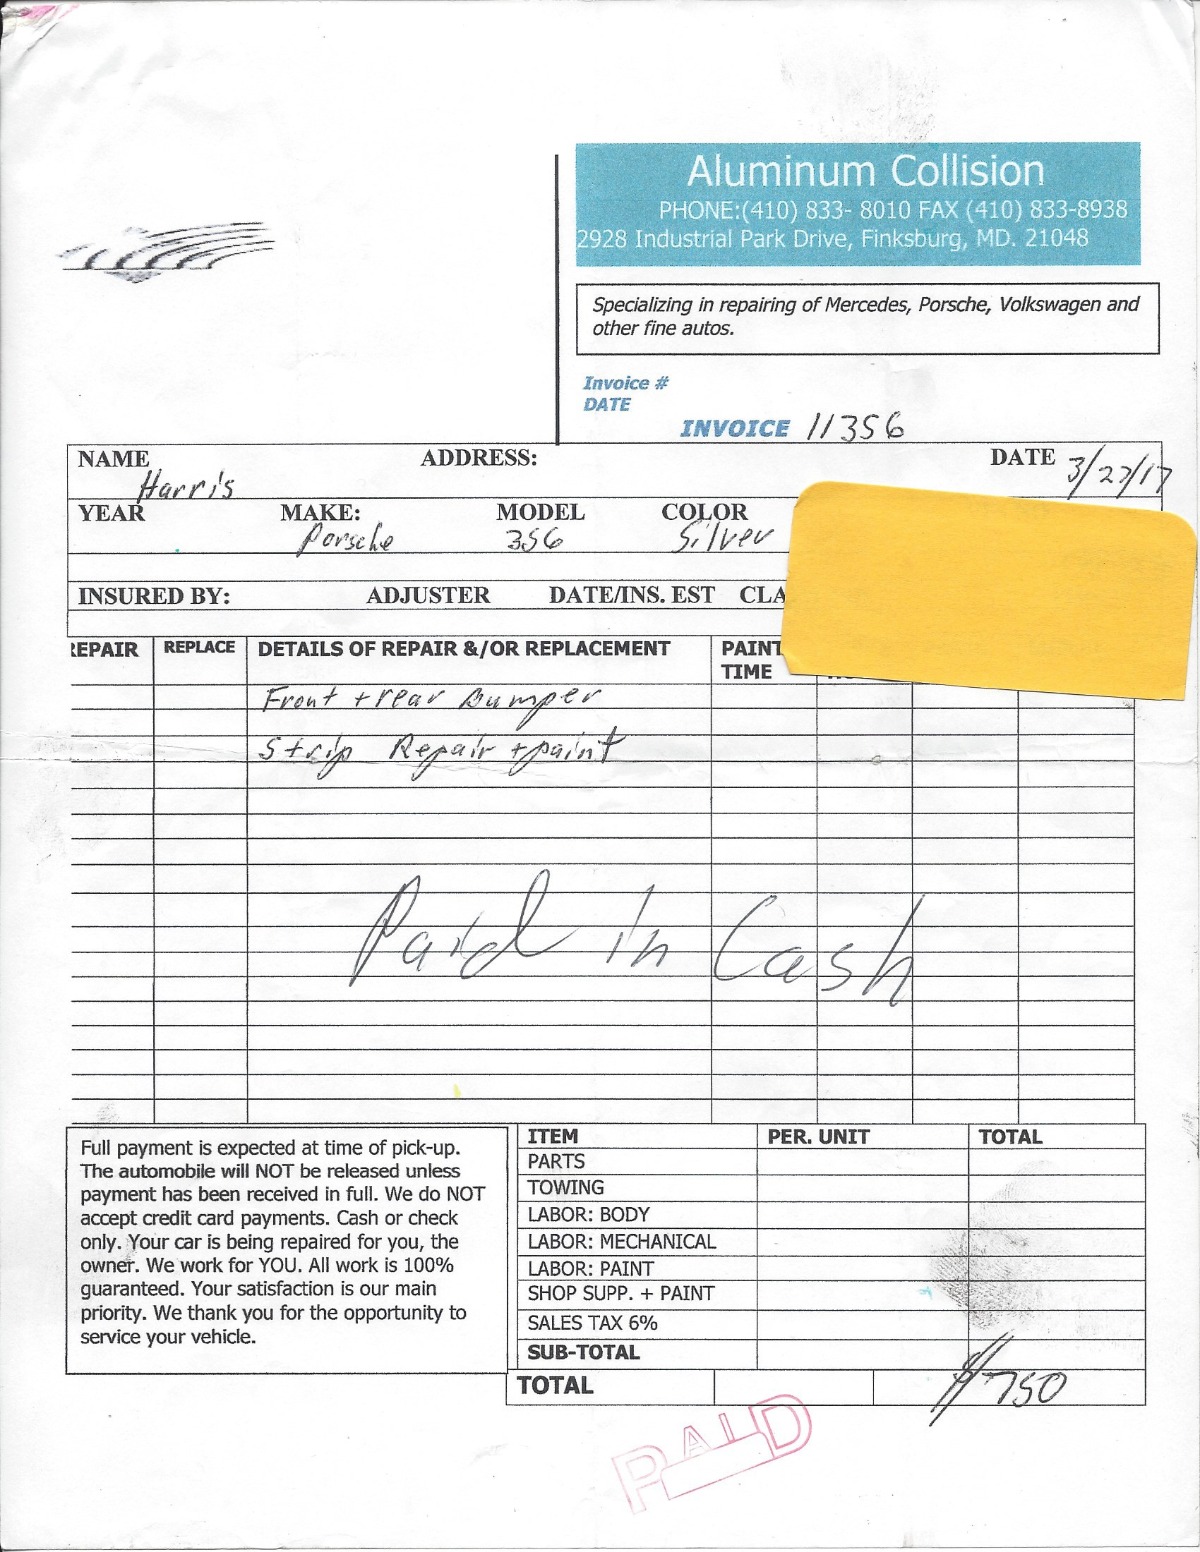 Aluminum Collision
PHONE:(410) 833- 8010 FAX (410) 833-8938
2928 Industrial Park Drive, Finksburg, MD. 21048
Specializing in repairing of Mercedes, Porsche, Volkswagen and
other fine autos.
Invoice #
DATE
INVOICE 11356
NAME ADDRESS: DATE 3/27/17
Harris
YEAR MAKE: MODEL COLOR
Porsche 356 Silver
INSURED BY: ADJUSTER DATE/INS. EST CLA
REPAIR REPLACE DETAILS OF REPAIR &/OR REPLACEMENT PAINT
TIME
Front + rear Bumper
Strip Repair + paint
Paid in Cash
Full payment is expected at time of pick-up.
The automobile will NOT be released unless
payment has been received in full. We do NOT
accept credit card payments. Cash or check
only. Your car is being repaired for you, the
owner. We work for YOU. All work is 100%
guaranteed. Your satisfaction is our main
priority. We thank you for the opportunity to
service your vehicle.
ITEM PER. UNIT TOTAL
PARTS
TOWING
LABOR: BODY
LABOR: MECHANICAL
LABOR: PAINT
SHOP SUPP. + PAINT
SALES TAX 6%
SUB-TOTAL
TOTAL $750
PAID